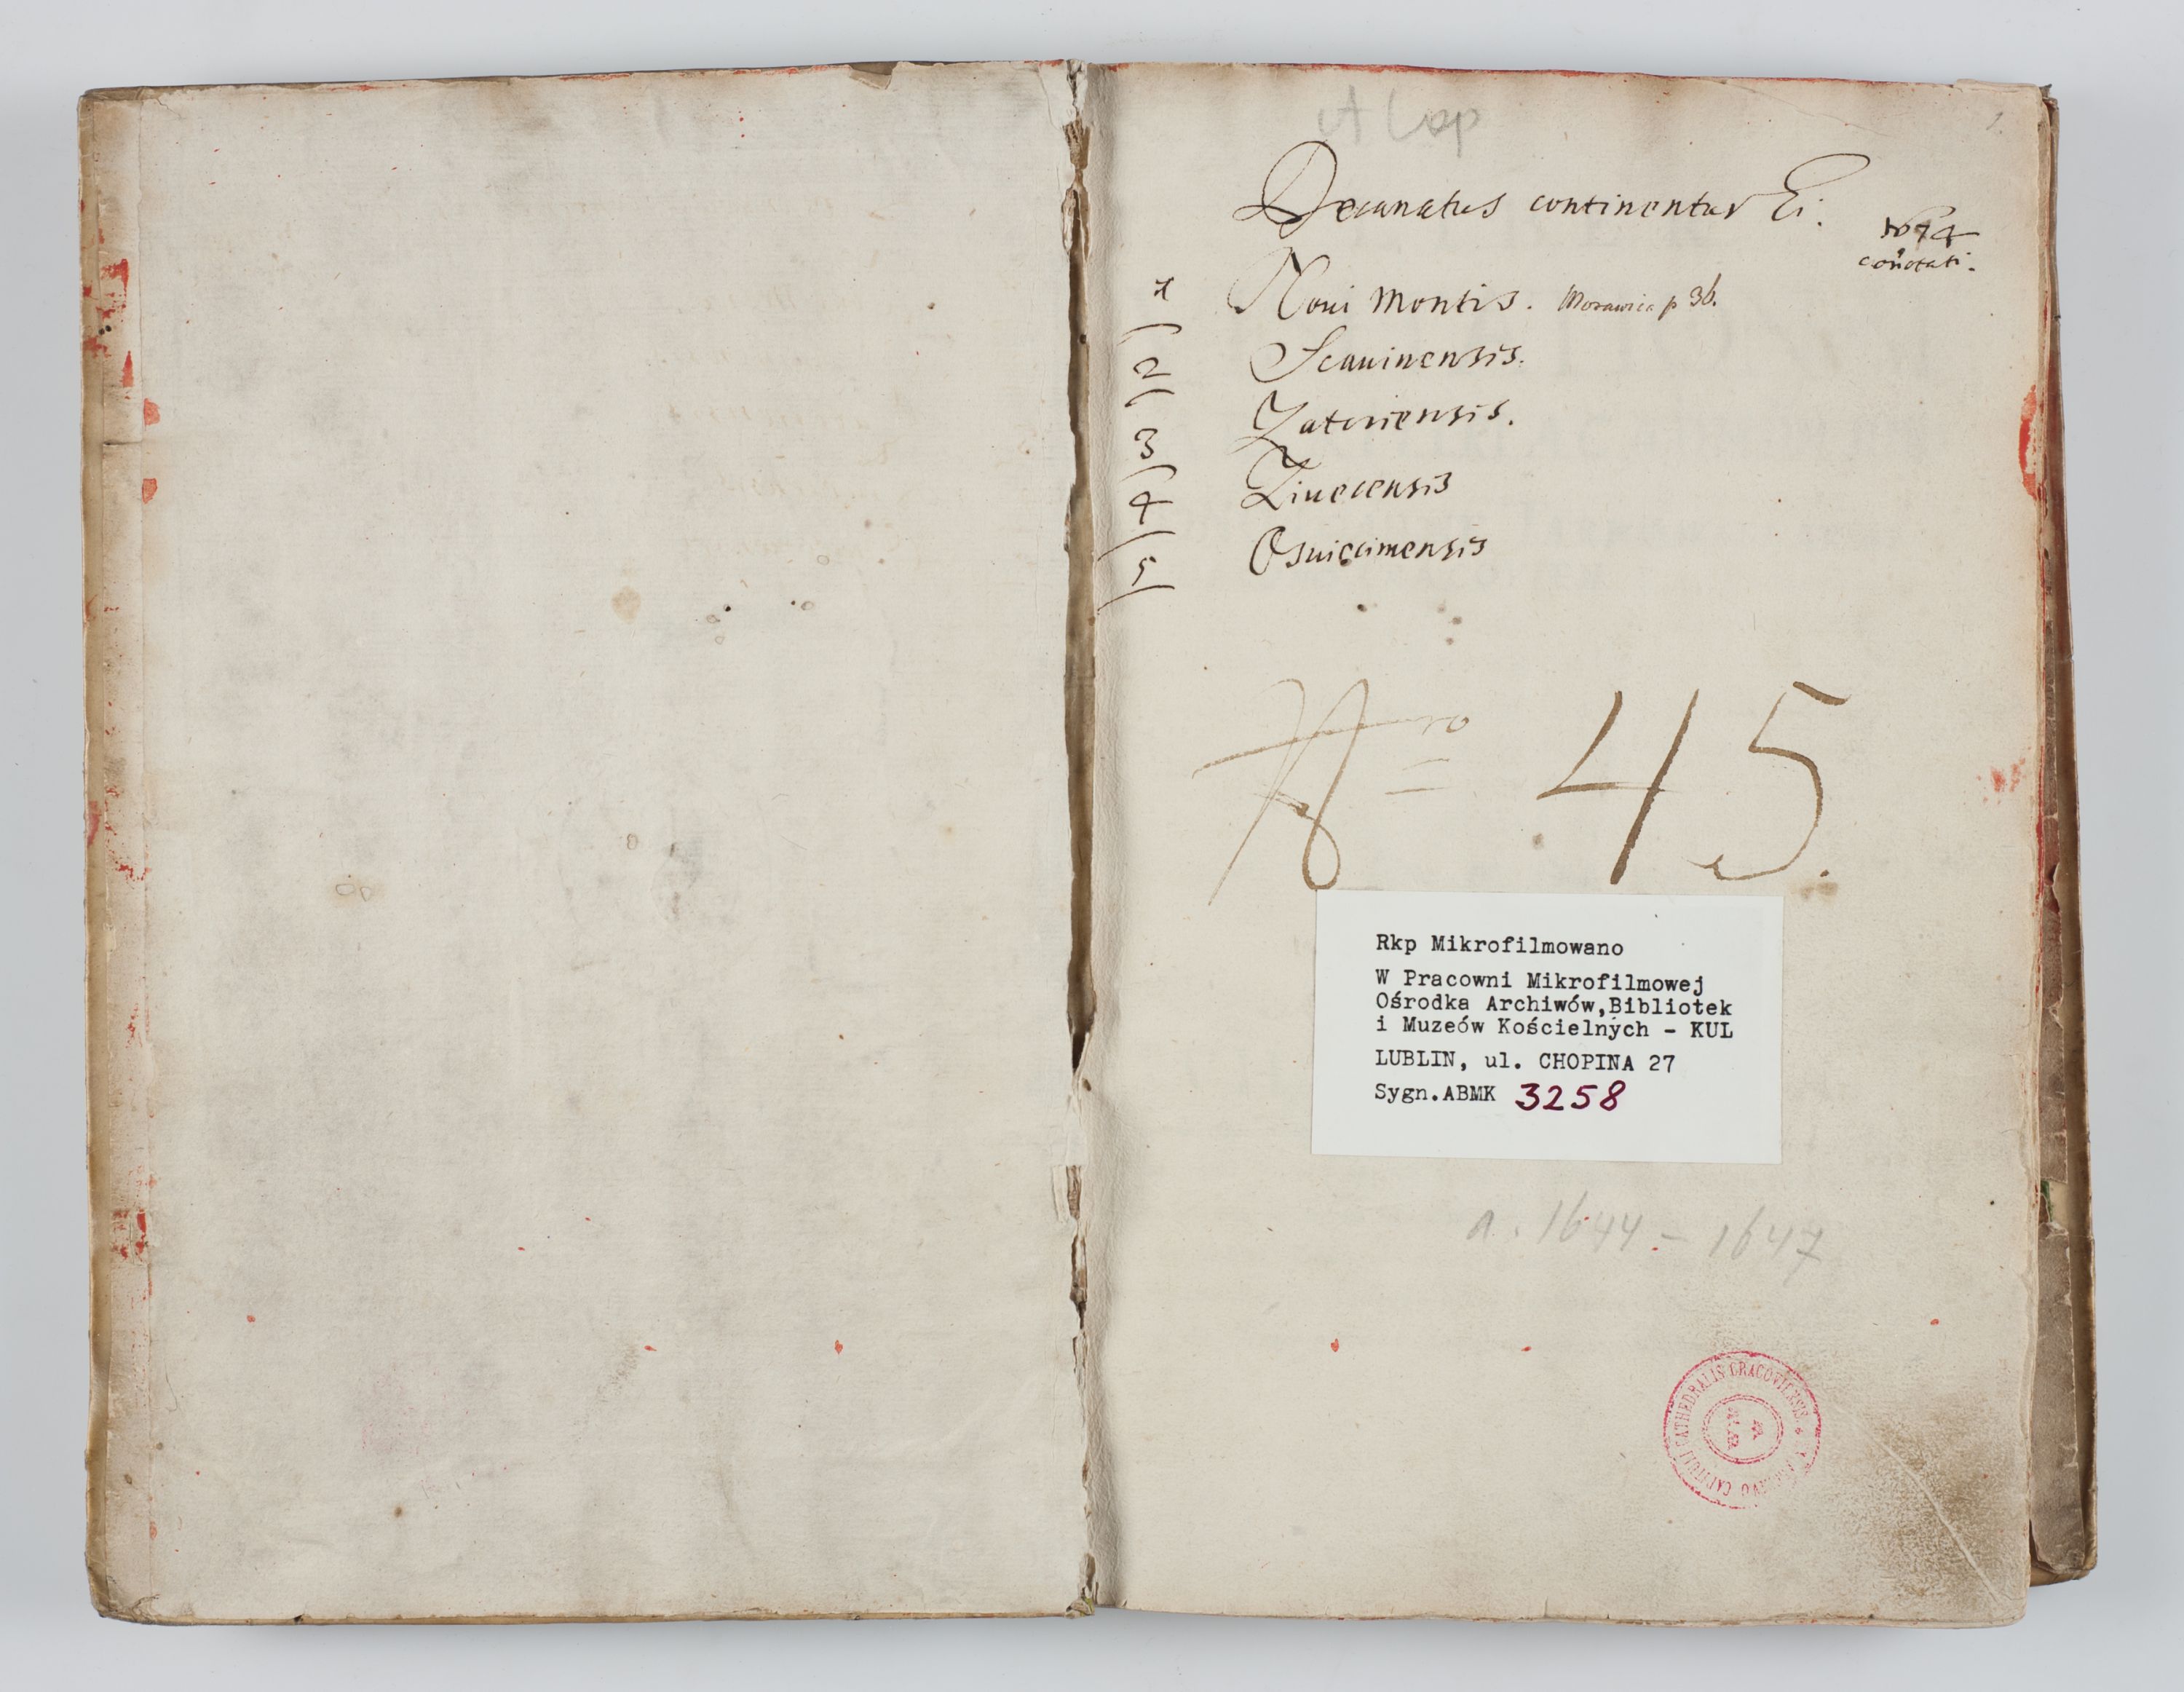 1.
Decanatus continentur Ei:
1674
connotati.
1 Noui Montis. Morawica p 36.
2 Scauinensis.
3 Zatoriensis.
4 Ziuecensis
5 Osuiecimensis
Nro 45.
Rkp Mikrofilmowano
W Pracowni Mikrofilmowej
Ośrodka Archiwów,Bibliotek
i Muzeów Kościelnych - KUL
LUBLIN, ul. CHOPINA 27
Sygn.ABMK 3258
a. 1644 - 1647
CAPITULI CATHEDRALIS CRACOVIENSIS